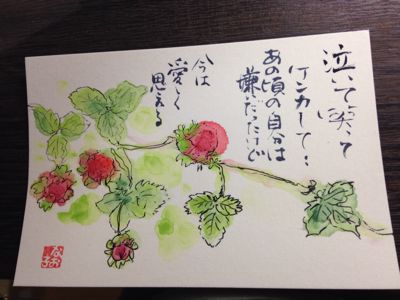 泣いて笑って
ケンカして!
あの頃の自分は
嫌だったけど
今は
愛しく
思える